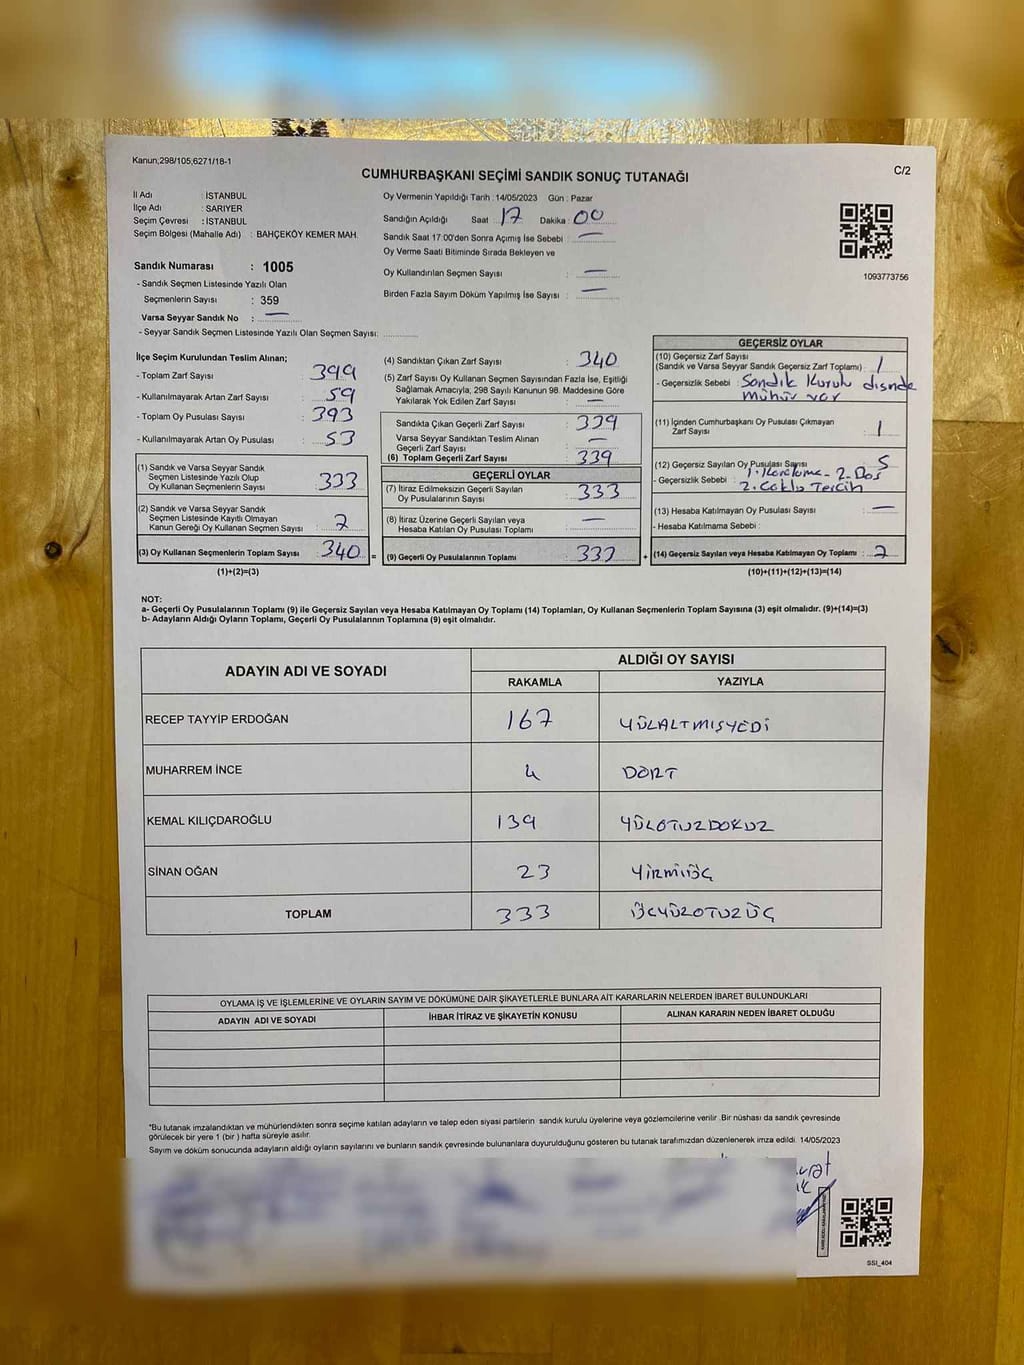 Kanun;298/105;6271/18-1
CUMHURBAŞKANI SEÇİMİ SANDIK SONUÇ TUTANAĞI
C/2
İl Adı : İSTANBUL
İlçe Adı : SARIYER
Seçim Çevresi : İSTANBUL
Seçim Bölgesi (Mahalle Adı) : BAHÇEKÖY KEMER MAH.
Sandık Numarası : 1005
- Sandık Seçmen Listesinde Yazılı Olan
Seçmenlerin Sayısı : 359
Varsa Seyyar Sandık No : —
- Seyyar Sandık Seçmen Listesinde Yazılı Olan Seçmen Sayısı: ............
Oy Vermenin Yapıldığı Tarih : 14/05/2023 Gün : Pazar
Sandığın Açıldığı Saat : 17 Dakika : 00
Sandık Saat 17:00'den Sonra Açımış İse Sebebi : —
Oy Verme Saati Bitiminde Sırada Bekleyen ve
Oy Kullandırılan Seçmen Sayısı : —
Birden Fazla Sayım Döküm Yapılmış İse Sayısı : —
1093773756
İlçe Seçim Kurulundan Teslim Alınan;
- Toplam Zarf Sayısı : 399
- Kullanılmayarak Artan Zarf Sayısı : 59
- Toplam Oy Pusulası Sayısı : 393
- Kullanılmayarak Artan Oy Pusulası : 53
(1) Sandık ve Varsa Seyyar Sandık
Seçmen Listesinde Yazılı Olup
Oy Kullanan Seçmenlerin Sayısı : 333
(2) Sandık ve Varsa Seyyar Sandık
Seçmen Listesinde Kayıtlı Olmayan
Kanun Gereği Oy Kullanan Seçmen Sayısı : 7
(3) Oy Kullanan Seçmenlerin Toplam Sayısı : 340
(1)+(2)=(3)
(4) Sandıktan Çıkan Zarf Sayısı : 340
(5) Zarf Sayısı Oy Kullanan Seçmen Sayısından Fazla İse, Eşitliği
Sağlamak Amacıyla; 298 Sayılı Kanunun 98. Maddesine Göre
Yakılarak Yok Edilen Zarf Sayısı : —
Sandıkta Çıkan Geçerli Zarf Sayısı : 339
Varsa Seyyar Sandıktan Teslim Alınan
Geçerli Zarf Sayısı : —
(6) Toplam Geçerli Zarf Sayısı : 339
GEÇERLİ OYLAR
(7) İtiraz Edilmeksizin Geçerli Sayılan
Oy Pusulalarının Sayısı : 333
(8) İtiraz Üzerine Geçerli Sayılan veya
Hesaba Katılan Oy Pusulası Toplamı : —
= (9) Geçerli Oy Pusulalarının Toplamı : 333
GEÇERSİZ OYLAR
(10) Geçersiz Zarf Sayısı
(Sandık ve Varsa Seyyar Sandık Geçersiz Zarf Toplamı) : 1
- Geçersizlik Sebebi : Sandık Kurulu dışında
mühür var
(11) İçinden Cumhurbaşkanı Oy Pusulası Çıkmayan
Zarf Sayısı : 1
(12) Geçersiz Sayılan Oy Pusulası Sayısı : 5
- Geçersizlik Sebebi : 1. Karalama - 2. Boş
2. Çoklu Tercih
(13) Hesaba Katılmayan Oy Pusulası Sayısı : —
- Hesaba Katılmama Sebebi :
+ (14) Geçersiz Sayılan veya Hesaba Katılmayan Oy Toplamı : 7
(10)+(11)+(12)+(13)=(14)
NOT:
a- Geçerli Oy Pusulalarının Toplamı (9) ile Geçersiz Sayılan veya Hesaba Katılmayan Oy Toplamı (14) Toplamları, Oy Kullanan Seçmenlerin Toplam Sayısına (3) eşit olmalıdır. (9)+(14)=(3)
b- Adayların Aldığı Oyların Toplamı, Geçerli Oy Pusulalarının Toplamına (9) eşit olmalıdır.
ADAYIN ADI VE SOYADI
ALDIĞI OY SAYISI
RAKAMLA YAZIYLA
RECEP TAYYİP ERDOĞAN 167 YÜZALTMIŞYEDİ
MUHARREM İNCE 4 DÖRT
KEMAL KILIÇDAROĞLU 139 YÜZOTUZDOKUZ
SİNAN OĞAN 23 YİRMİÜÇ
TOPLAM 333 ÜÇYÜZOTUZÜÇ
OYLAMA İŞ VE İŞLEMLERİNE VE OYLARIN SAYIM VE DÖKÜMÜNE DAİR ŞİKAYETLERLE BUNLARA AİT KARARLARIN NELERDEN İBARET BULUNDUKLARI
ADAYIN ADI VE SOYADI İHBAR İTİRAZ VE ŞİKAYETİN KONUSU ALINAN KARARIN NEDEN İBARET OLDUĞU
*Bu tutanak imzalandıktan ve mühürlendikten sonra seçime katılan adayların ve talep eden siyasi partilerin sandık kurulu üyelerine veya gözlemcilerine verilir. Bir nüshası da sandık çevresinde
görülecek bir yere 1 (bir) hafta süreyle asılır.
Sayım ve döküm sonucunda adayların aldığı oyların sayılarını ve bunların sandık çevresinde bulunanlara duyurulduğunu gösteren bu tutanak tarafımızdan düzenlenerek imza edildi. 14/05/2023
SSI_404